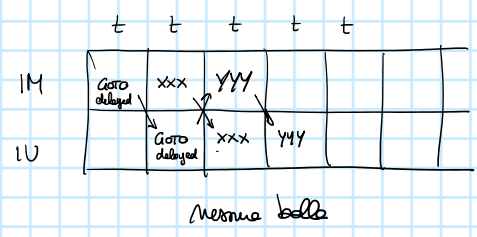 t t t t t
IM GOTO delayed xxx yyy
IU GOTO delayed xxx yyy
nessuna bolla